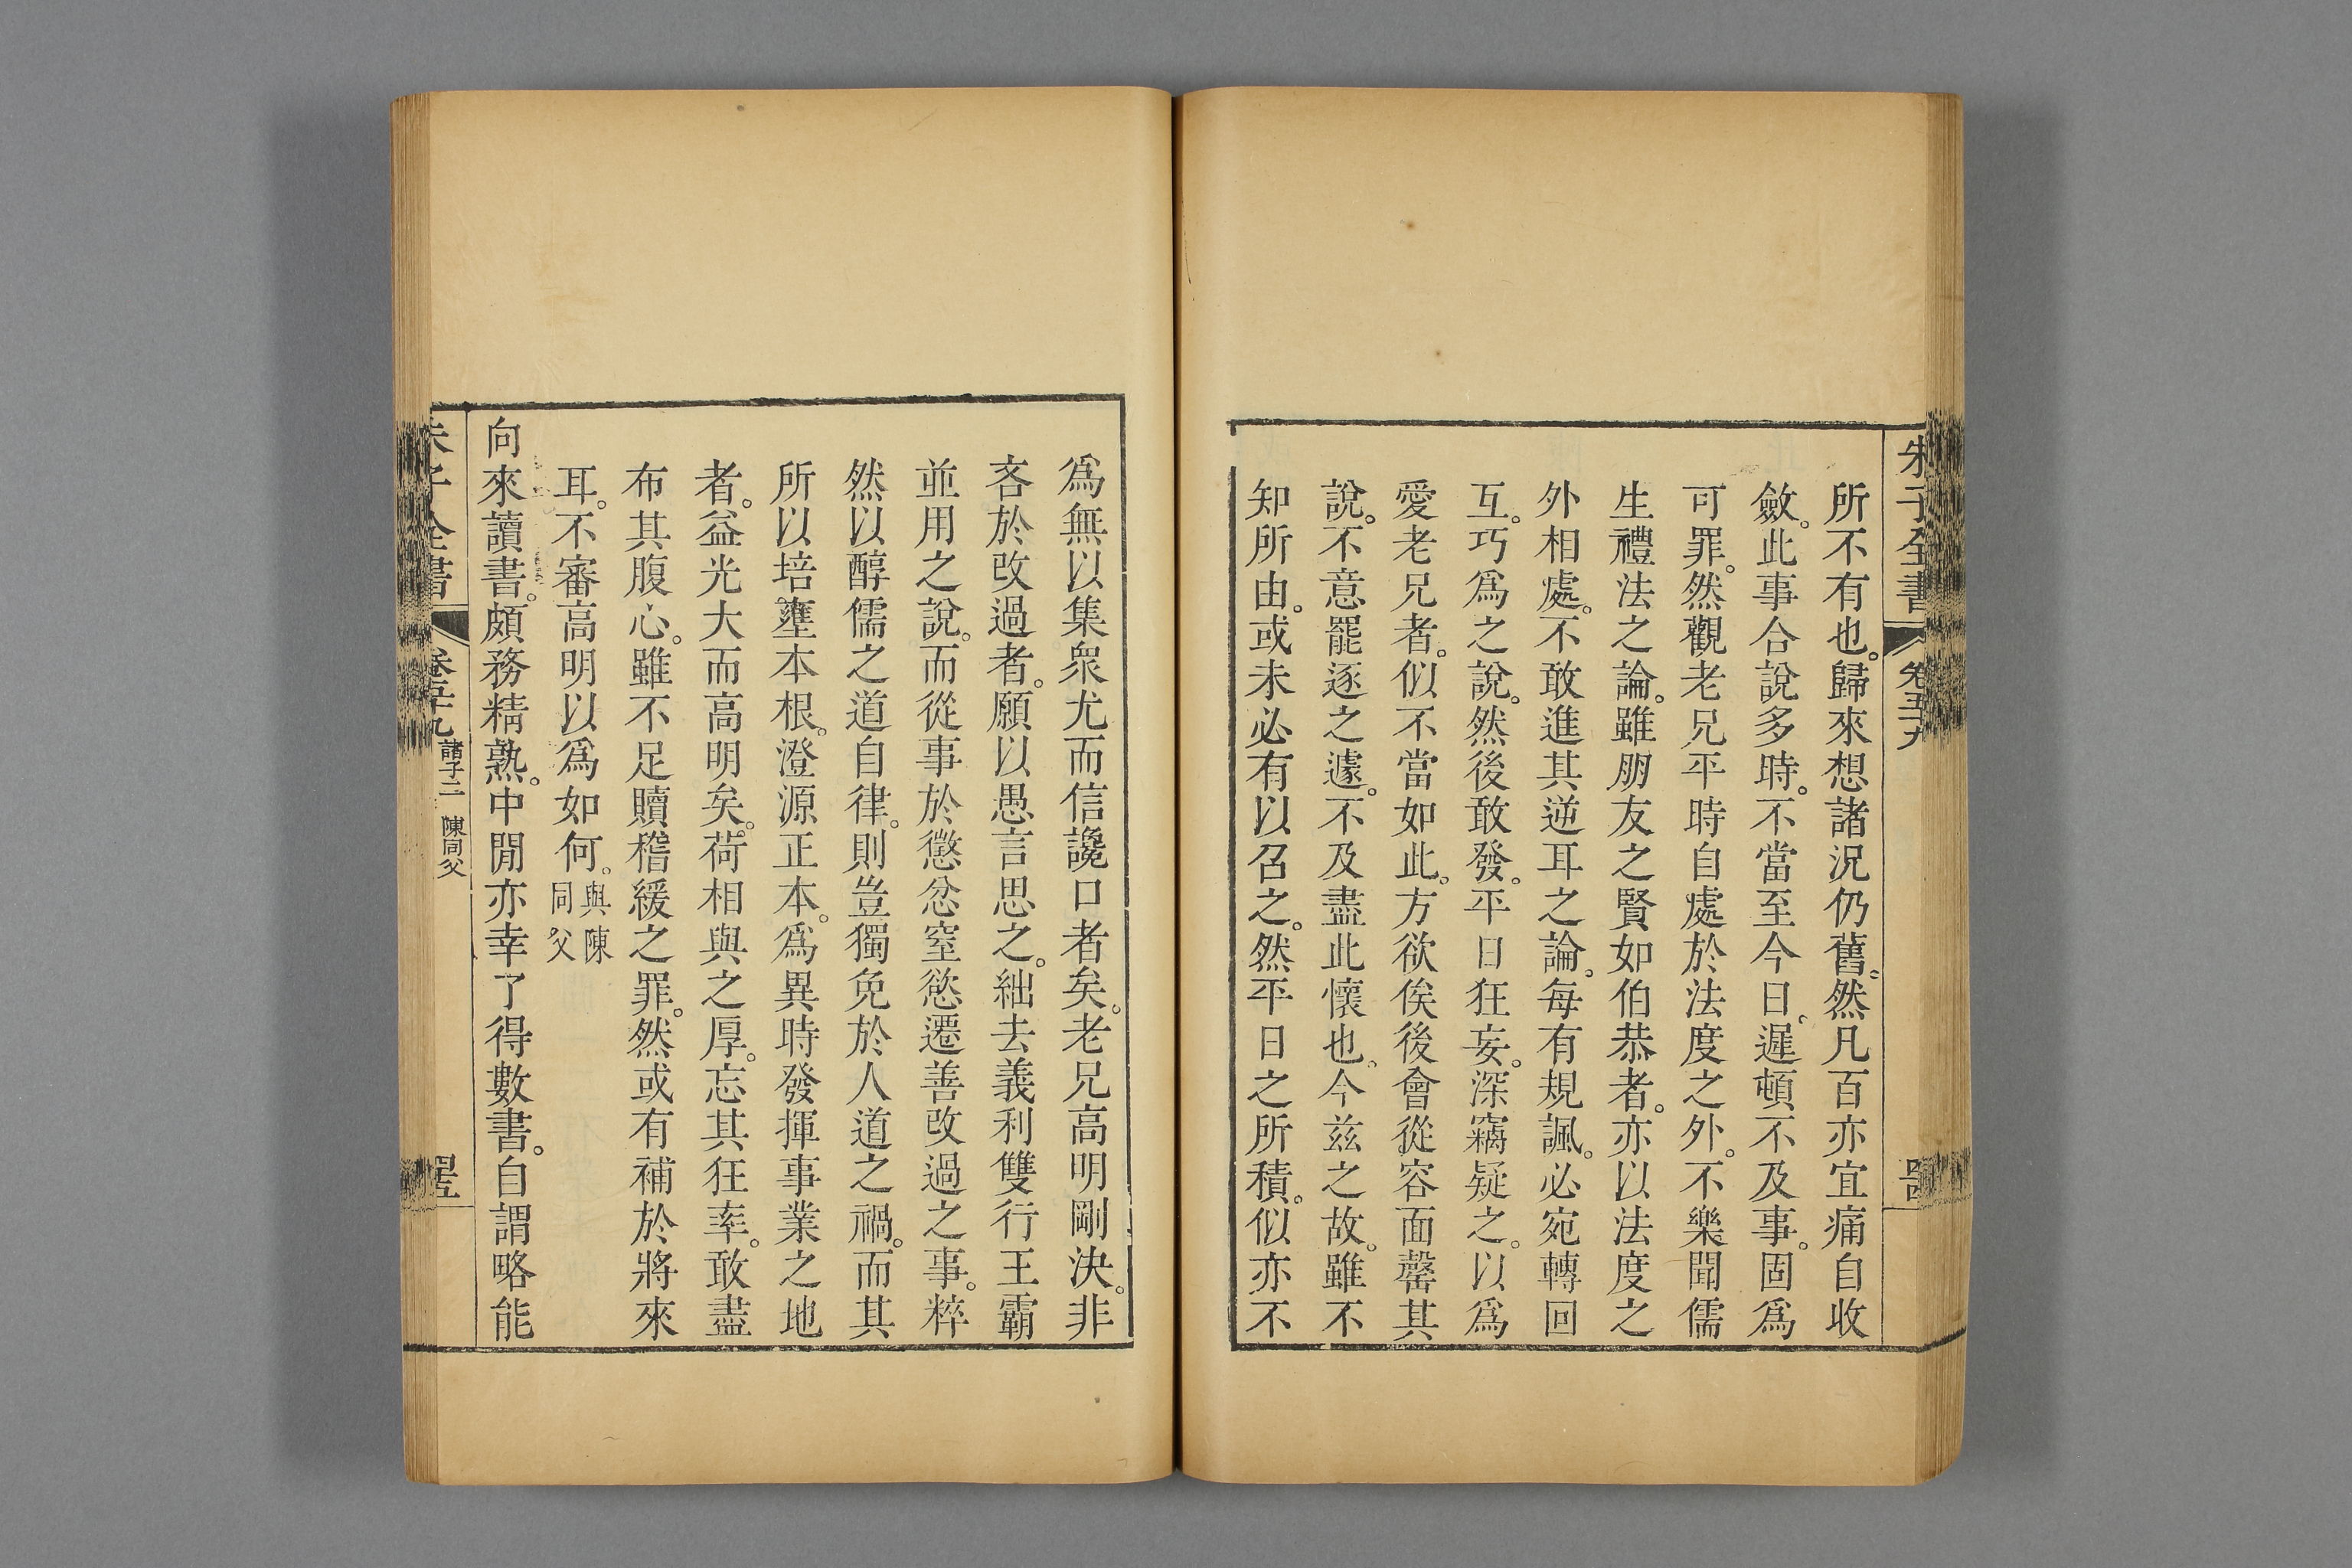 朱子全書 卷五十九
所不有也。歸來想諸況仍舊。然凡百亦宜痛自收
斂。此事合說多時。不當至今日。遲頓不及事。固爲
可罪。然觀老兄平時自處於法度之外。不樂聞儒
生禮法之論。雖朋友之賢如伯恭者。亦以法度之
外相處。不敢進其逆耳之論。每有規諷。必宛轉回
互。巧爲之說。然後敢發。平日狂妄。深竊疑之。以爲
愛老兄者。似不當如此。方欲俟後會從容面罄其
說。不意罷逐之遽。不及盡此懷也。今兹之故。雖不
知所由。或未必有以召之。然平日之所積。似亦不
爲無以集衆尤而信讒口者矣。老兄高明剛決。非
吝於改過者。願以愚言思之。絀去義利雙行王霸
並用之說。而從事於懲忿窒慾遷善改過之事。粹
然以醇儒之道自律。則豈獨免於人道之禍。而其
所以培壅本根。澄源正本。爲異時發揮事業之地
者。益光大而高明矣。荷相與之厚。忘其狂率。敢盡
布其腹心。雖不足贖稽緩之罪。然或有補於將來
耳。不審高明以爲如何。與陳同父
向來讀書。頗務精熟。中閒亦幸了得數書。自謂略能
朱子全書 卷五十九 諸子二 陳同父